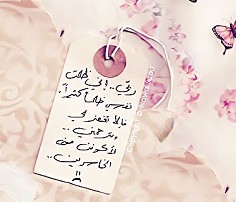 ربّي.. إني ظلمت
نفسي ظلماً كثيراً
فإلا تغفر لي
وترحمني..
لأكونن من
الخاسرين..
Copyright ©